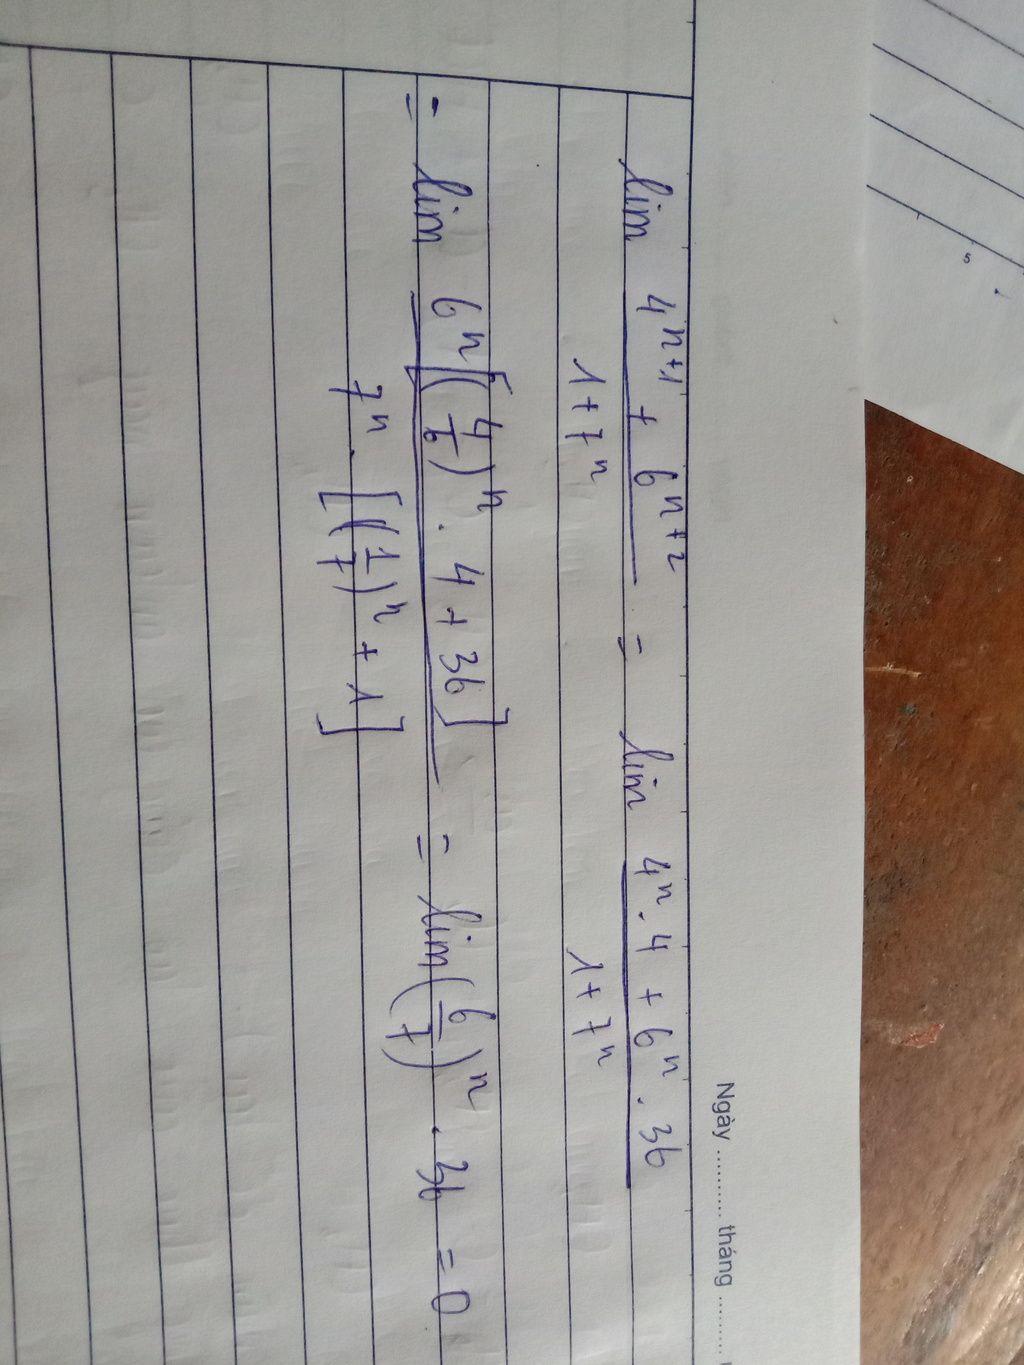 Ngày .......... tháng ..........
lim (4^{n+1} + 6^{n+2}) / (1 + 7^n) = lim (4^n . 4 + 6^n . 36) / (1 + 7^n)
= lim (6^n [(4/6)^n . 4 + 36]) / (7^n . [(1/7)^n + 1]) = lim (6/7)^n . 36 = 0
5